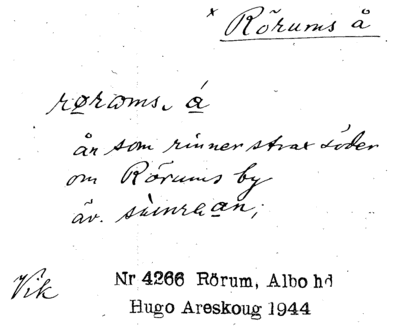 × Rörums å
rørams, á
ån som rinner strax söder
om Rörums by
äv.
Vik
Nr 4266 Rörum, Albo hd
Hugo Areskoug 1944